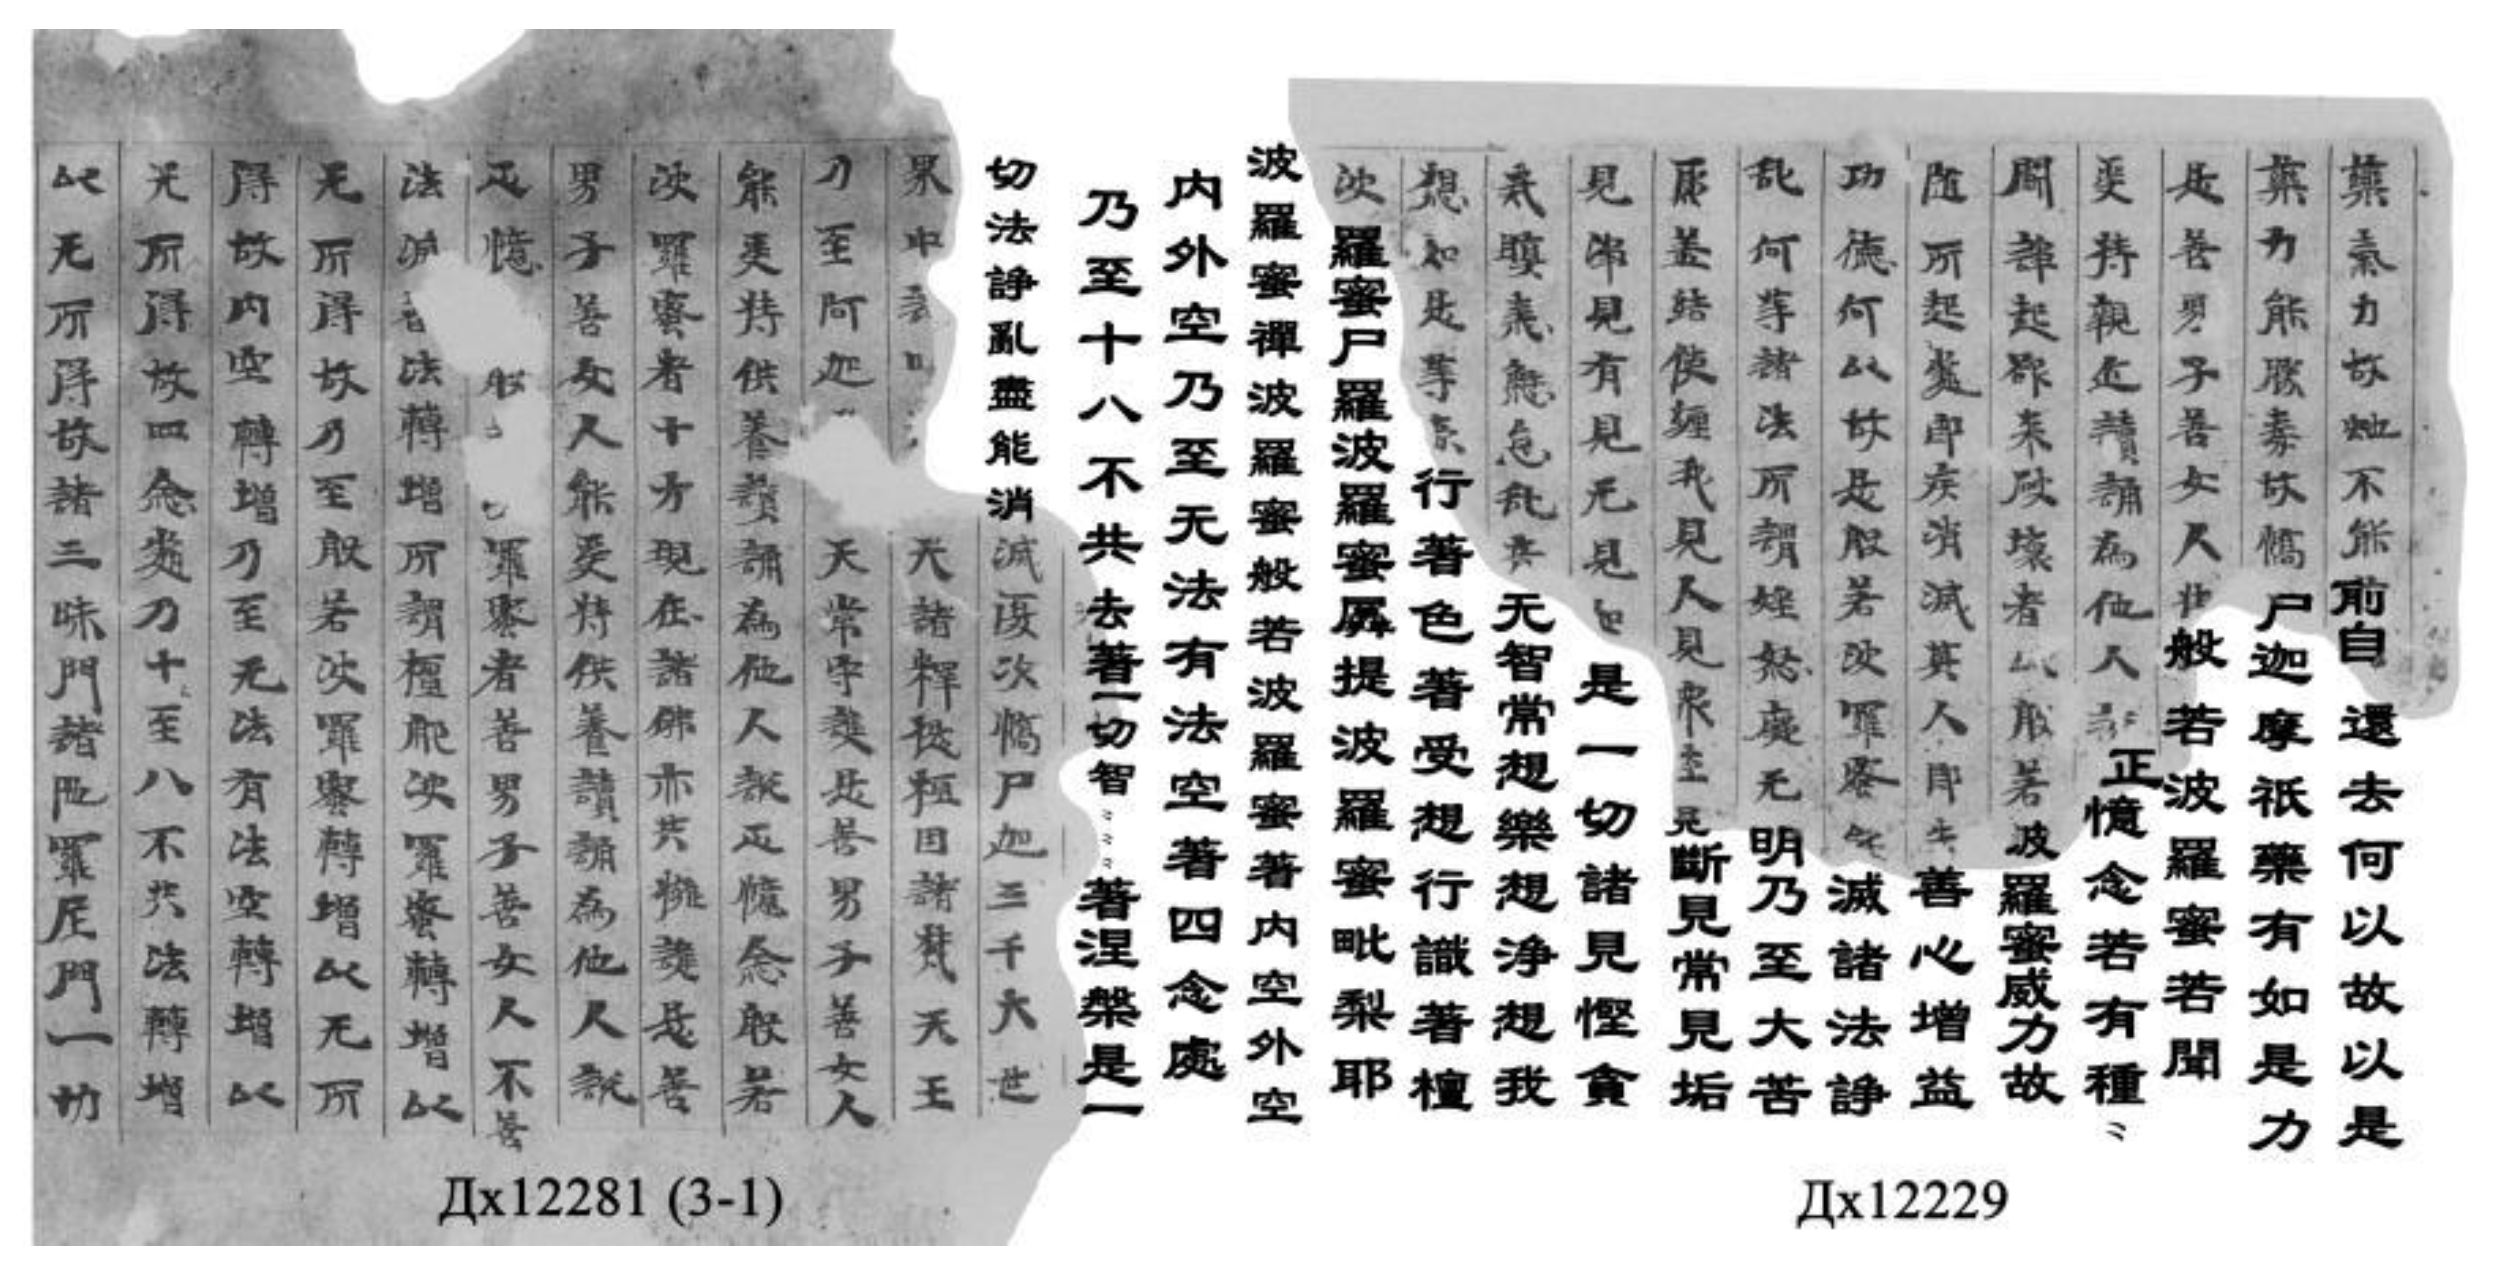 藥氣力故虵不能前自還去何以故以是
藥力能勝毒故憍尸迦摩祇藥有如是力
是善男子善女人般若波羅蜜若聞
受持親近讀誦為他人說正憶念若有種〃
間諍起欲來破壞者以般若波羅蜜威力故
随所起處即疾消滅其人即生善心增益
功德何以故是般若波羅蜜能滅諸法諍
乱何等諸法所謂婬怒癡无明乃至大苦
聚盖結使纏我見人見衆生見斷見常見垢
見淨見有見无見如是一切諸見慳貪
瞋恚懈怠乱意无智常想樂想淨想我
想如是等行著色著受想行識著檀
波羅蜜尸羅波羅蜜羼提波羅蜜毗梨耶
波羅蜜禪波羅蜜般若波羅蜜著内空外空
内外空乃至无法有法空著四念處
乃至十八不共去著一切智〃〃〃著涅槃是一
切法諍亂盡能消滅復次憍尸迦三千大世
界中天諸釋提桓因諸梵天王
乃至阿迦天常守護是善男子善女人
能受持供養讀誦為他人說正憶念般若
波羅蜜者十方現在諸佛亦共擁護是善
男子善女人能受持供養讀誦為他人說
正憶般羅蜜者善男子善女人不善
法滅善法轉增所謂檀般波羅蜜轉增以
无所得故乃至般若波羅蜜轉增以无所
得故内空轉增乃至无法有法空轉增以
无所得故四念處乃十至八不共法轉增
以无所得故諸三昧門諸陁羅尼門一切
Дх12281 (3-1)
Дх12229